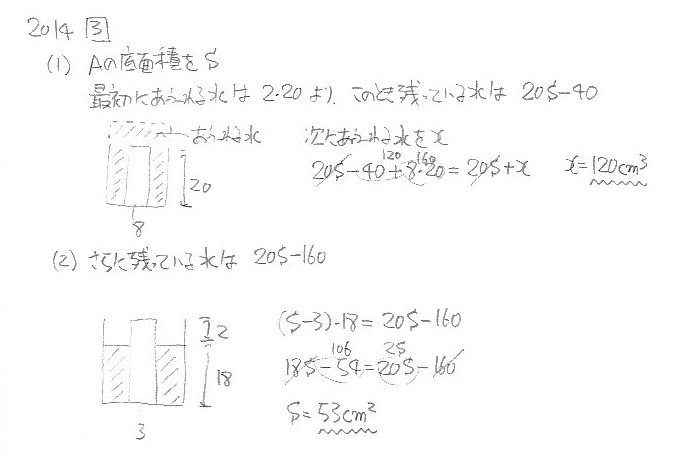 2014 3
(1) Aの底面積をS
最初にあふれる水は 2・20 より、このとき残っている水は 20S-40
あふれる水
次にあふれる水を x
20
8
120 160
20S-40+8・20=20S+x x=120cm³
(2) さらに残っている水は 20S-160
2
18
3
(S-3)・18=20S-160
106 2S
18S-54=20S-160
S=53cm²